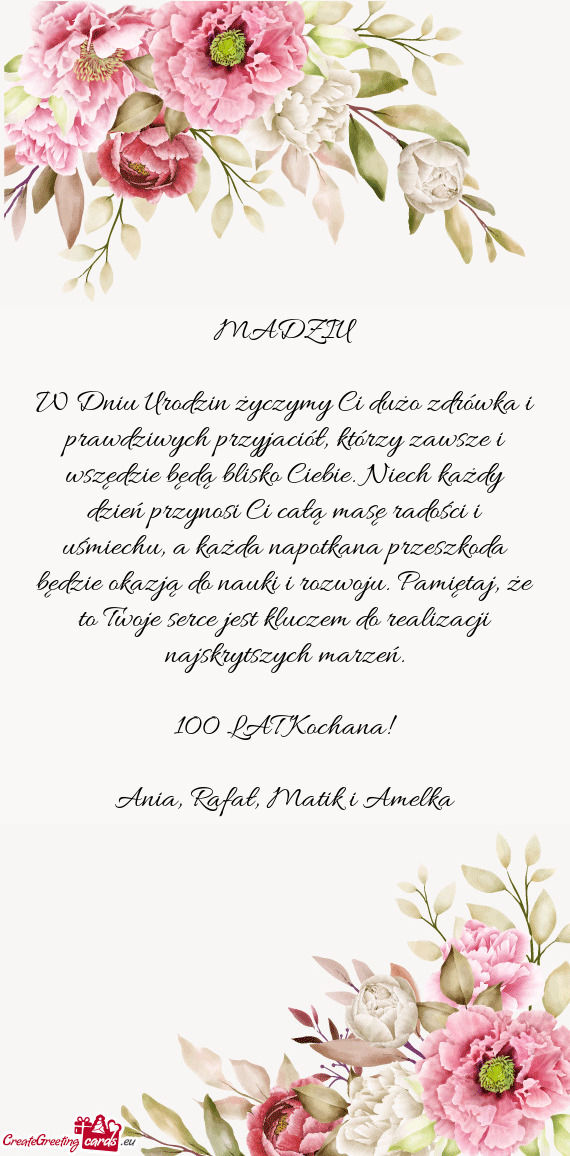 MADZIU
W Dniu Urodzin życzymy Ci dużo zdrówka i
prawdziwych przyjaciół, którzy zawsze i
wszędzie będą blisko Ciebie. Niech każdy
dzień przynosi Ci całą masę radości i
uśmiechu, a każda napotkana przeszkoda
będzie okazją do nauki i rozwoju. Pamiętaj, że
to Twoje serce jest kluczem do realizacji
najskrytszych marzeń.
100 LAT Kochana!
Ania, Rafał, Matik i Amelka
CreateGreeting cards .eu